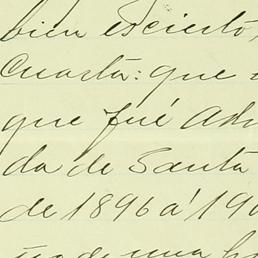 bien escierto,
Cuarta: que
que fué Ad
da de Santa
de 1896 á 19
de una